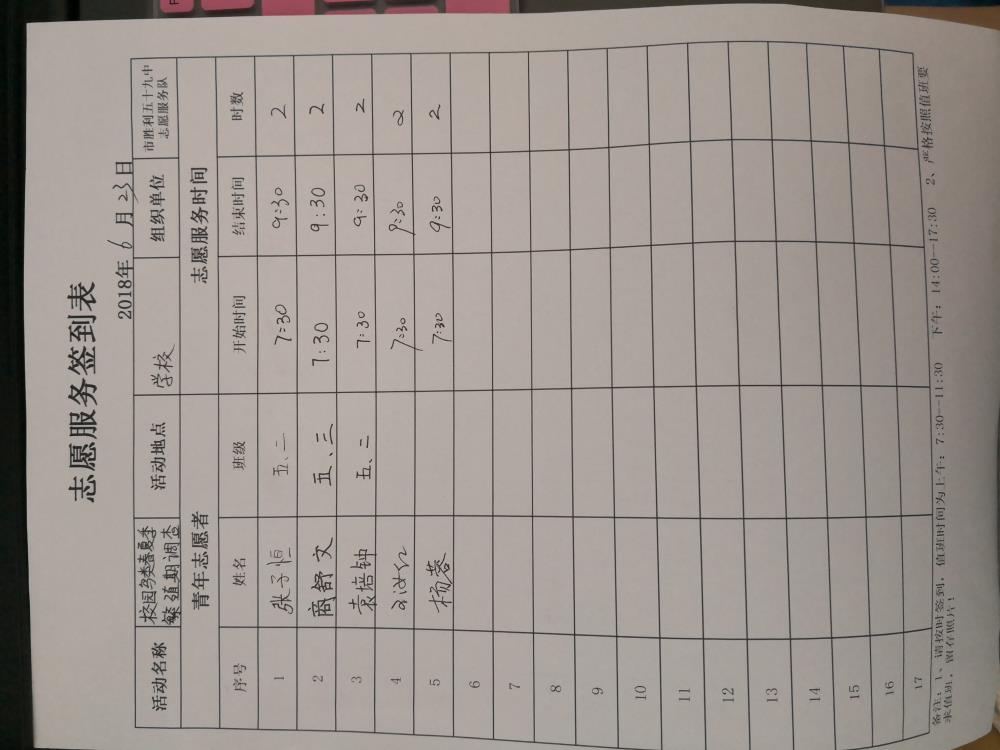 志愿服务签到表
2018年 6 月 23 日
活动名称 校园鸟类春夏季繁殖期调查 活动地点 学校 组织单位 市胜利五十九中志愿服务队
青年志愿者 志愿服务时间
序号 姓名 班级 开始时间 结束时间 时数
1 张子恒 五、二 7:30 9:30 2
2 商舒文 五、三 7:30 9:30 2
3 袁培钟 五、二 7:30 9:30 2
4 7:30 9:30 2
5 杨蓉 7:30 9:30 2
6
7
8
9
10
11
12
13
14
15
16
17
备注:1、请按时签到,值班时间为上午:7:30--11:30 下午:14:00--17:30 2、严格按照值班要
求值班,留存照片!